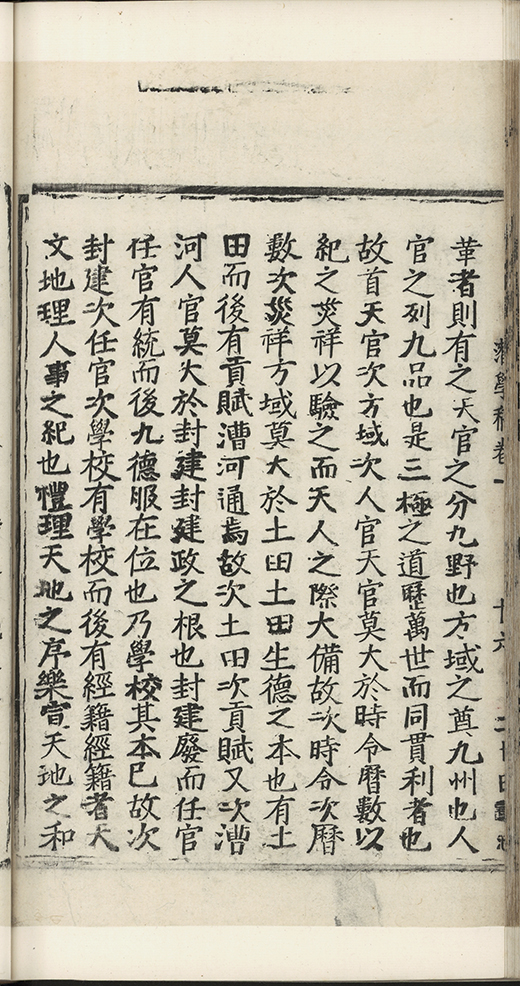 潛學稿卷一 十六
華者則有之天官之分九野也方域之奠九州也人
官之列九品也是三極之道歷萬世而同貫利者也
故首天官次方域次人官天官莫大於時令曆數以
紀之災祥以驗之而天人之際大備故次時令次曆
數次災祥方域莫大於土田土田生德之本也有土
田而後有貢賦漕河通焉故次土田次貢賦又次漕
河人官莫大於封建封建政之根也封建廢而任官
任官有統而後九德服在位也乃學校其本已故次
封建次任官次學校有學校而後有經籍經籍者天
文地理人事之紀也禮理天地之序樂宣天地之和